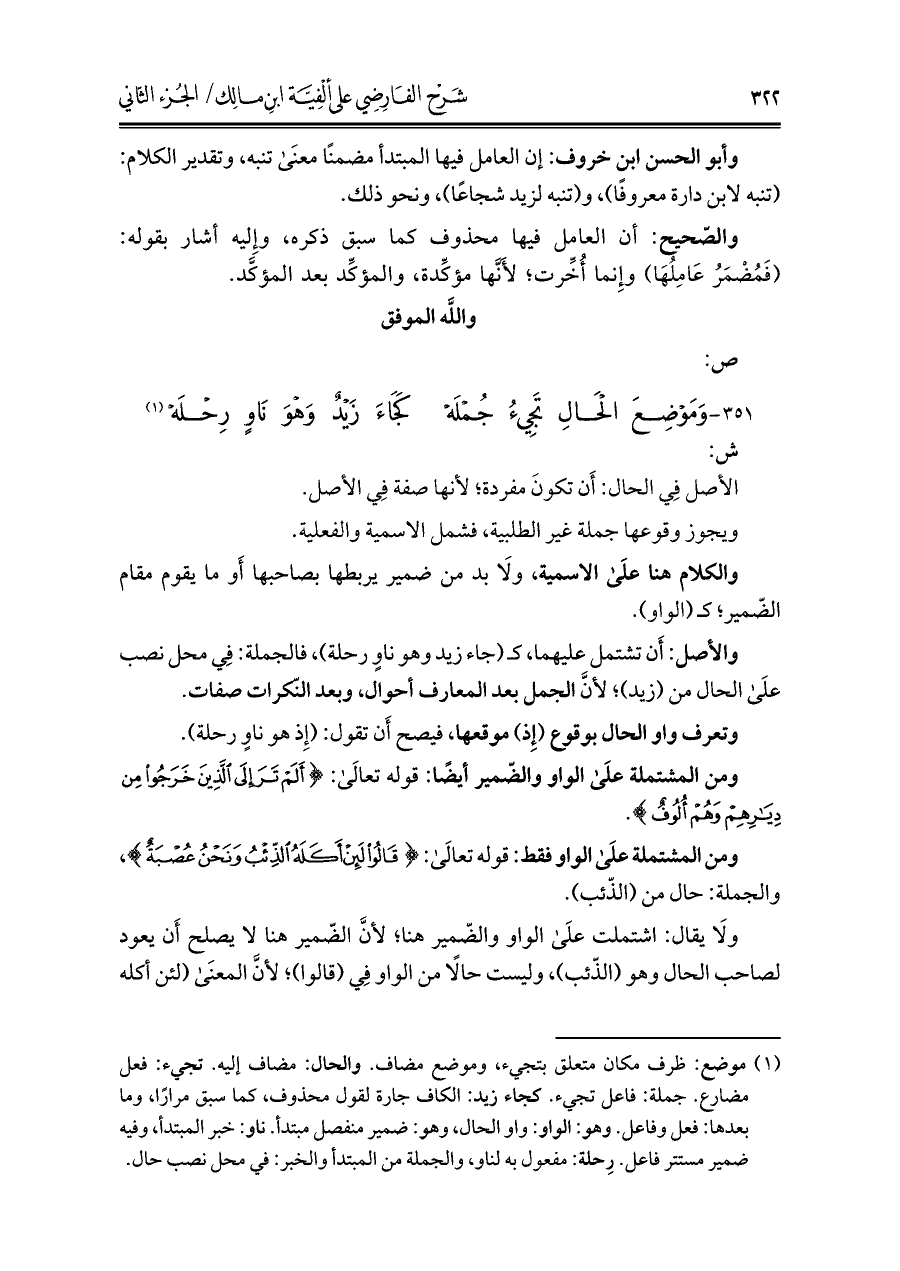 ٣٢٢ شرح الفارضي على ألفية ابن مالك/ الجزء الثاني
وأبو الحسن ابن خروف: إن العامل فيها المبتدأ مضمنًا معنَىٰ تنبه، وتقدير الكلام:
(تنبه لابن دارة معروفًا)، و(تنبه لزيد شجاعًا)، ونحو ذلك.
والصّحيح: أن العامل فيها محذوف كما سبق ذكره، وإليه أشار بقوله:
(فَمُضْمَرُ عَامِلُهَا) وإنما أُخِّرت؛ لأنَّها مؤكِّدة، والمؤكِّد بعد المؤكَّد.
واللَّه الموفق
ص:
٣٥١-وَمَوْضِعَ الْحَالِ تَجِيءُ جُمْلَهْ كَجَاءَ زَيْدٌ وَهْوَ نَاوٍ رِحْلَهْ(١)
ش:
الأصل فِي الحال: أَن تكونَ مفردة؛ لأنها صفة فِي الأصل.
ويجوز وقوعها جملة غير الطلبية، فشمل الاسمية والفعلية.
والكلام هنا علَىٰ الاسمية، ولَا بد من ضمير يربطها بصاحبها أَو ما يقوم مقام
الضّمير؛ كـ (الواو).
والأصل: أَن تشتمل عليهما، كـ (جاء زيد وهو ناوٍ رحلة)، فالجملة: فِي محل نصب
علَىٰ الحال من (زيد)؛ لأنَّ الجمل بعد المعارف أحوال، وبعد النّكرات صفات.
وتعرف واو الحال بوقوع (إذ) موقعها، فيصح أَن تقول: (إذ هو ناوٍ رحلة).
ومن المشتملة علَىٰ الواو والضّمير أيضًا: قوله تعالَىٰ: ﴿ أَلَمْ تَرَ إِلَى ٱلَّذِينَ خَرَجُوا۟ مِن
دِيَـٰرِهِمْ وَهُمْ أُلُوفٌ ﴾.
ومن المشتملة علَىٰ الواو فقط: قوله تعالَىٰ: ﴿ قَالُوا۟ لَئِنْ أَكَلَهُ ٱلذِّئْبُ وَنَحْنُ عُصْبَةٌ ﴾،
والجملة: حال من (الذّئب).
ولَا يقال: اشتملت علَىٰ الواو والضّمير هنا؛ لأنَّ الضّمير هنا لا يصلح أَن يعود
لصاحب الحال وهو (الذّئب)، وليست حالًا من الواو فِي (قالوا)؛ لأنَّ المعنَىٰ (لئن أكله
(١) موضع: ظرف مكان متعلق بتجيء، وموضع مضاف. والحال: مضاف إليه. تجيء: فعل
مضارع. جملة: فاعل تجيء. كجاء زيد: الكاف جارة لقول محذوف، كما سبق مرارًا، وما
بعدها: فعل وفاعل. وهو: الواو: واو الحال، وهو: ضمير منفصل مبتدأ. ناو: خبر المبتدأ، وفيه
ضمير مستتر فاعل. رِحلة: مفعول به لناو، والجملة من المبتدأ والخبر: في محل نصب حال.